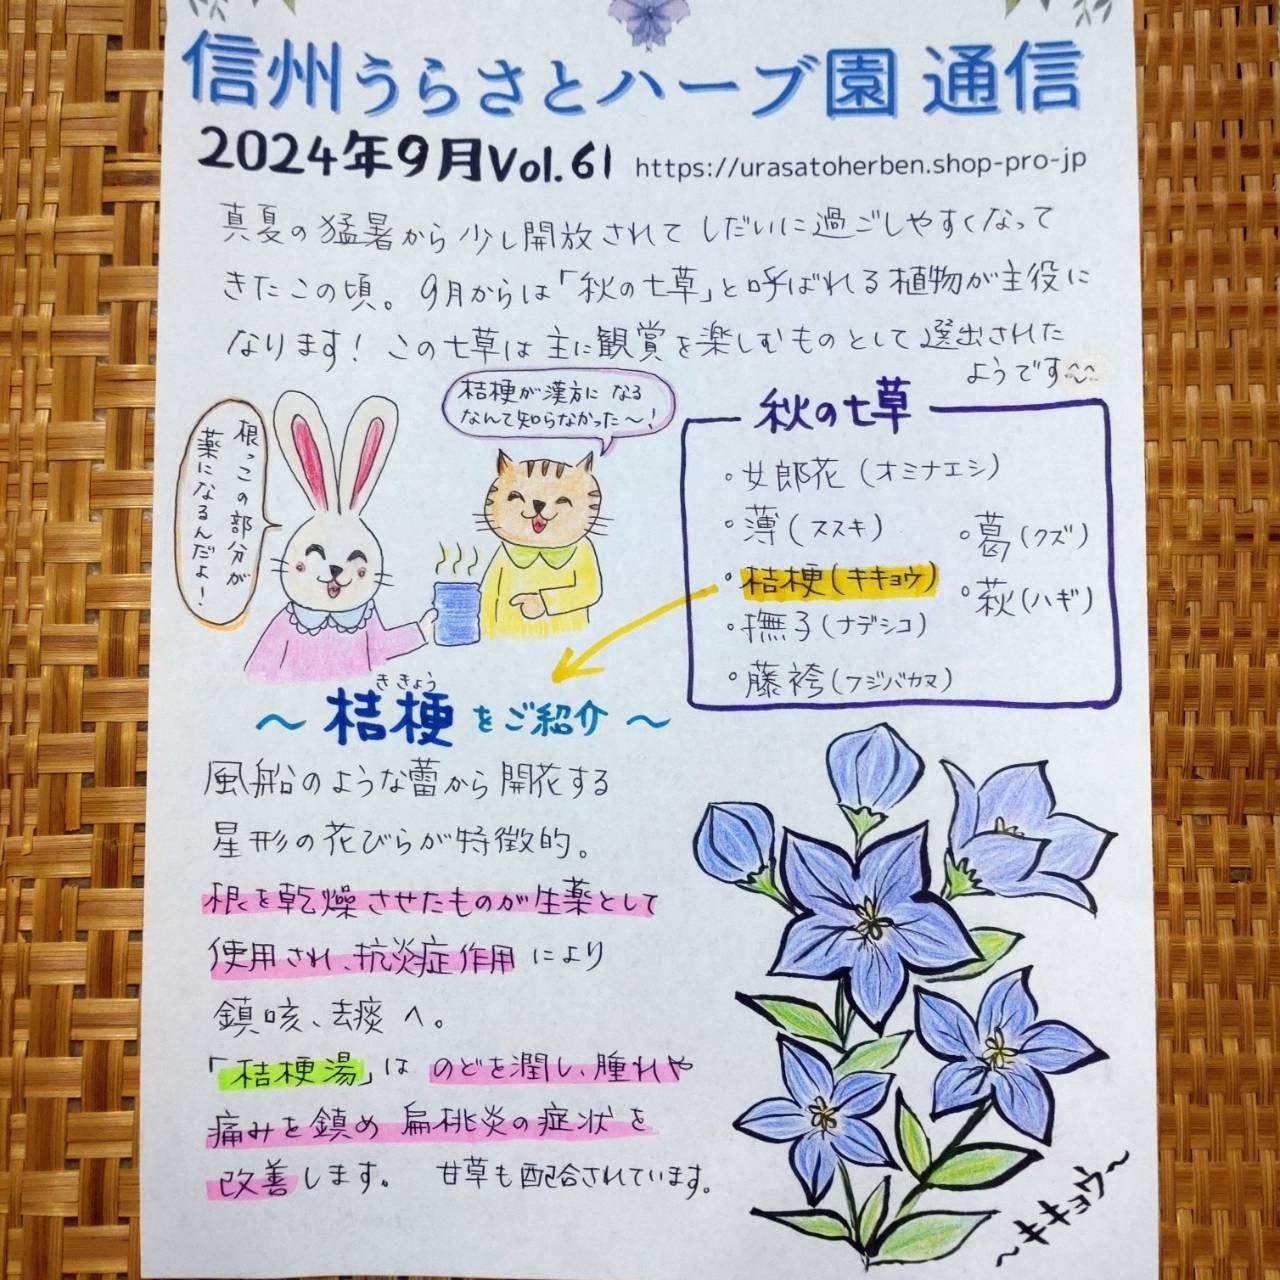 信州うらさとハーブ園 通信
2024年9月Vol.61 https://urasatoherben.shop-pro-jp
真夏の猛暑から少し開放されてしだいに過ごしやすくなって
きたこの頃。9月からは「秋の七草」と呼ばれる植物が主役に
なります！この七草は主に観賞を楽しむものとして選出された
ようです
根っこの部分が
薬になるんだよ！
桔梗が漢方になる
なんて知らなかった～！
秋の七草
・女郎花(オミナエシ)
・薄(ススキ)
・桔梗(キキョウ)
・撫子(ナデシコ)
・藤袴(フジバカマ)
・葛(クズ)
・萩(ハギ)
ききょう
～桔梗をご紹介～
風船のような蕾から開花する
星形の花びらが特徴的。
根を乾燥させたものが生薬として
使用され、抗炎症作用により
鎮咳、去痰へ。
「桔梗湯」はのどを潤し、腫れや
痛みを鎮め扁桃炎の症状を
改善します。 甘草も配合されています。
～キキョウ～